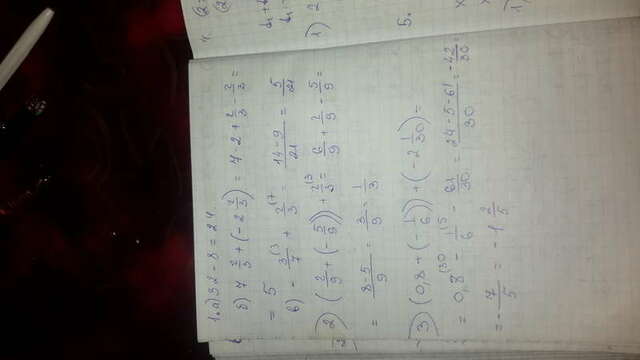 1. а) 32 - 8 = 24
б) 7 2/3 + (-2 2/3) = 7 - 2 + 2/3 - 2/3 =
= 5
в) - 3/7 + 2/3 = (14 - 9)/21 = 5/21
2) (2/9 + (-5/9)) + 2/3 = 6/9 + 2/9 - 5/9
= (8-5)/9 = 3/9 = 1/3
3) (0,8 + (-1/6)) + (-2 1/30) =
= 0,8 - 1/6 - 61/30 = (24-5-61)/30 = -42/30
= - 7/5 = -1 2/5
5.